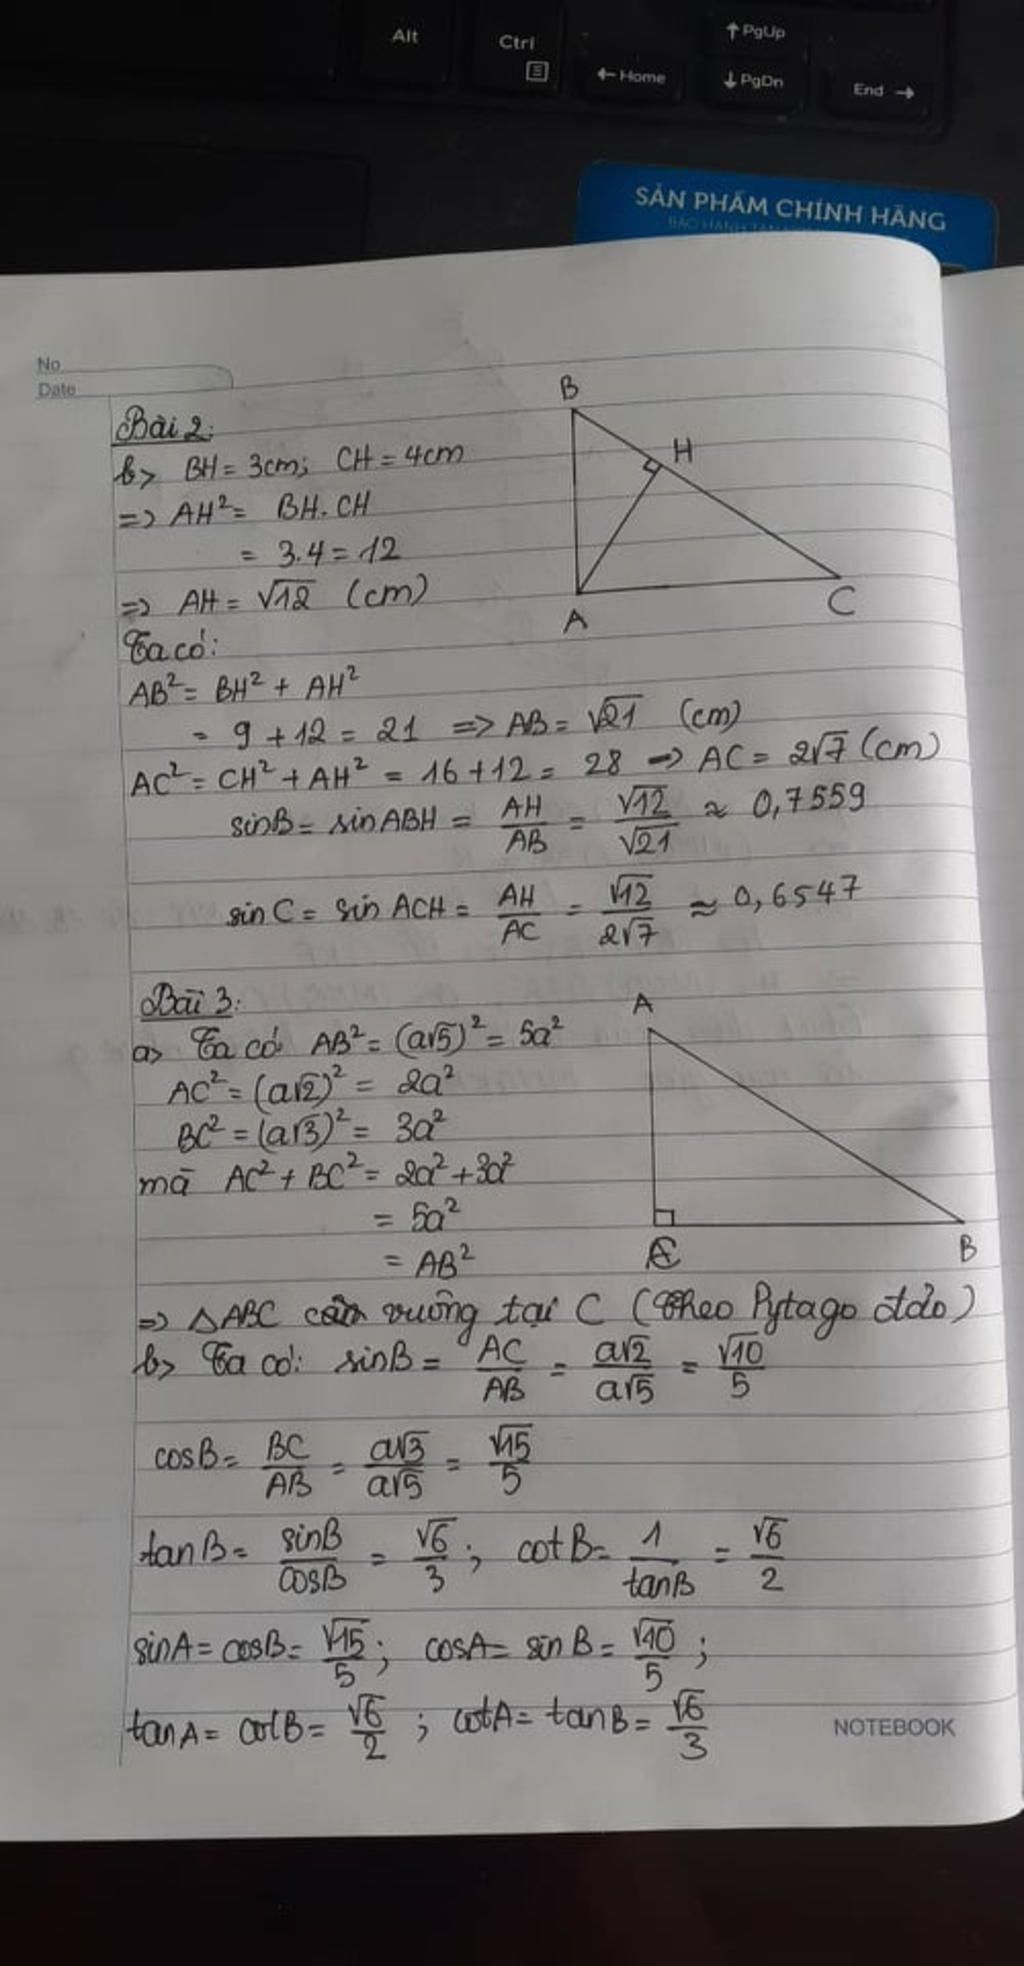 Alt
Ctrl
↑PgUp
←Home
↓PgDn
End →
SẢN PHẨM CHÍNH HÃNG
No
Date
Bài 2:
b> BH = 3cm; CH = 4cm
=> AH² = BH.CH
= 3.4 = 12
=> AH = √12 (cm)
B
H
A
C
Ta có:
AB² = BH² + AH²
= 9 + 12 = 21 => AB = √21 (cm)
AC² = CH² + AH² = 16 + 12 = 28 => AC = 2√7 (cm)
sinB = sinABH = AH/AB = √12/√21 ≈ 0,7559
sinC = sin ACH = AH/AC = √12/2√7 ≈ 0,6547
Bài 3:
a> Ta có AB² = (a√5)² = 5a²
AC² = (a√2)² = 2a²
BC² = (a√3)² = 3a²
mà AC² + BC² = 2a² + 3a²
= 5a²
= AB²
A
C
B
=> △ABC vuông tại C (Theo Pytago đảo)
b> Ta có: sinB = AC/AB = a√2/a√5 = √10/5
cosB = BC/AB = a√3/a√5 = √15/5
tanB = sinB/cosB = √6/3; cotB = 1/tanB = √6/2
sinA = cosB = √15/5; cosA = sinB = √10/5;
tanA = cotB = √6/2; cotA = tanB = √6/3
NOTEBOOK